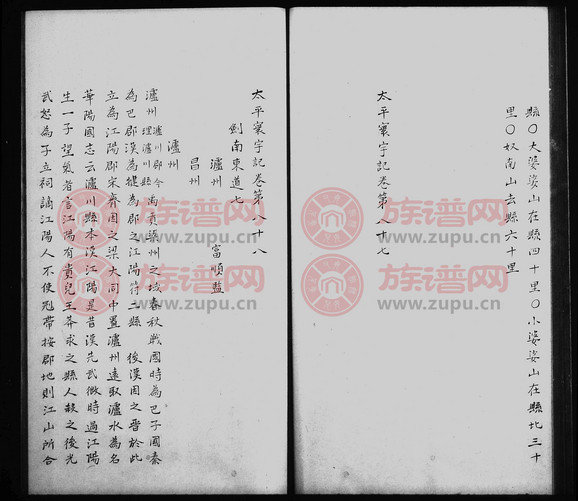 縣〇大婆娑山在縣四十里〇小婆娑山在縣北三十
里〇奴南山去縣六十里
太平寰宇記卷第八十七
太平寰宇記卷第八十八
劍南東道七
瀘州 富順監
昌州
瀘州
瀘州瀘川郡今理瀘川縣禹貢梁州之域春秋戰國時為巴子國秦
為巴郡漢為犍為郡之江陽符二縣 後漢因之晋於此
立為江陽郡宋齊因之梁大同中置瀘州遠取瀘水為名
華陽國志云瀘川縣本漢江陽是昔漢光武微時過江陽
生一子望氣者言江陽有貴兒王莽求之縣人殺之後光
武怒為子立祠謫江陽人不使冠帶按郡地則江山所合
族谱网
www.zupu.cn
族谱网
www.zupu.cn
族谱网
www.zupu.cn
族谱网
www.zupu.cn